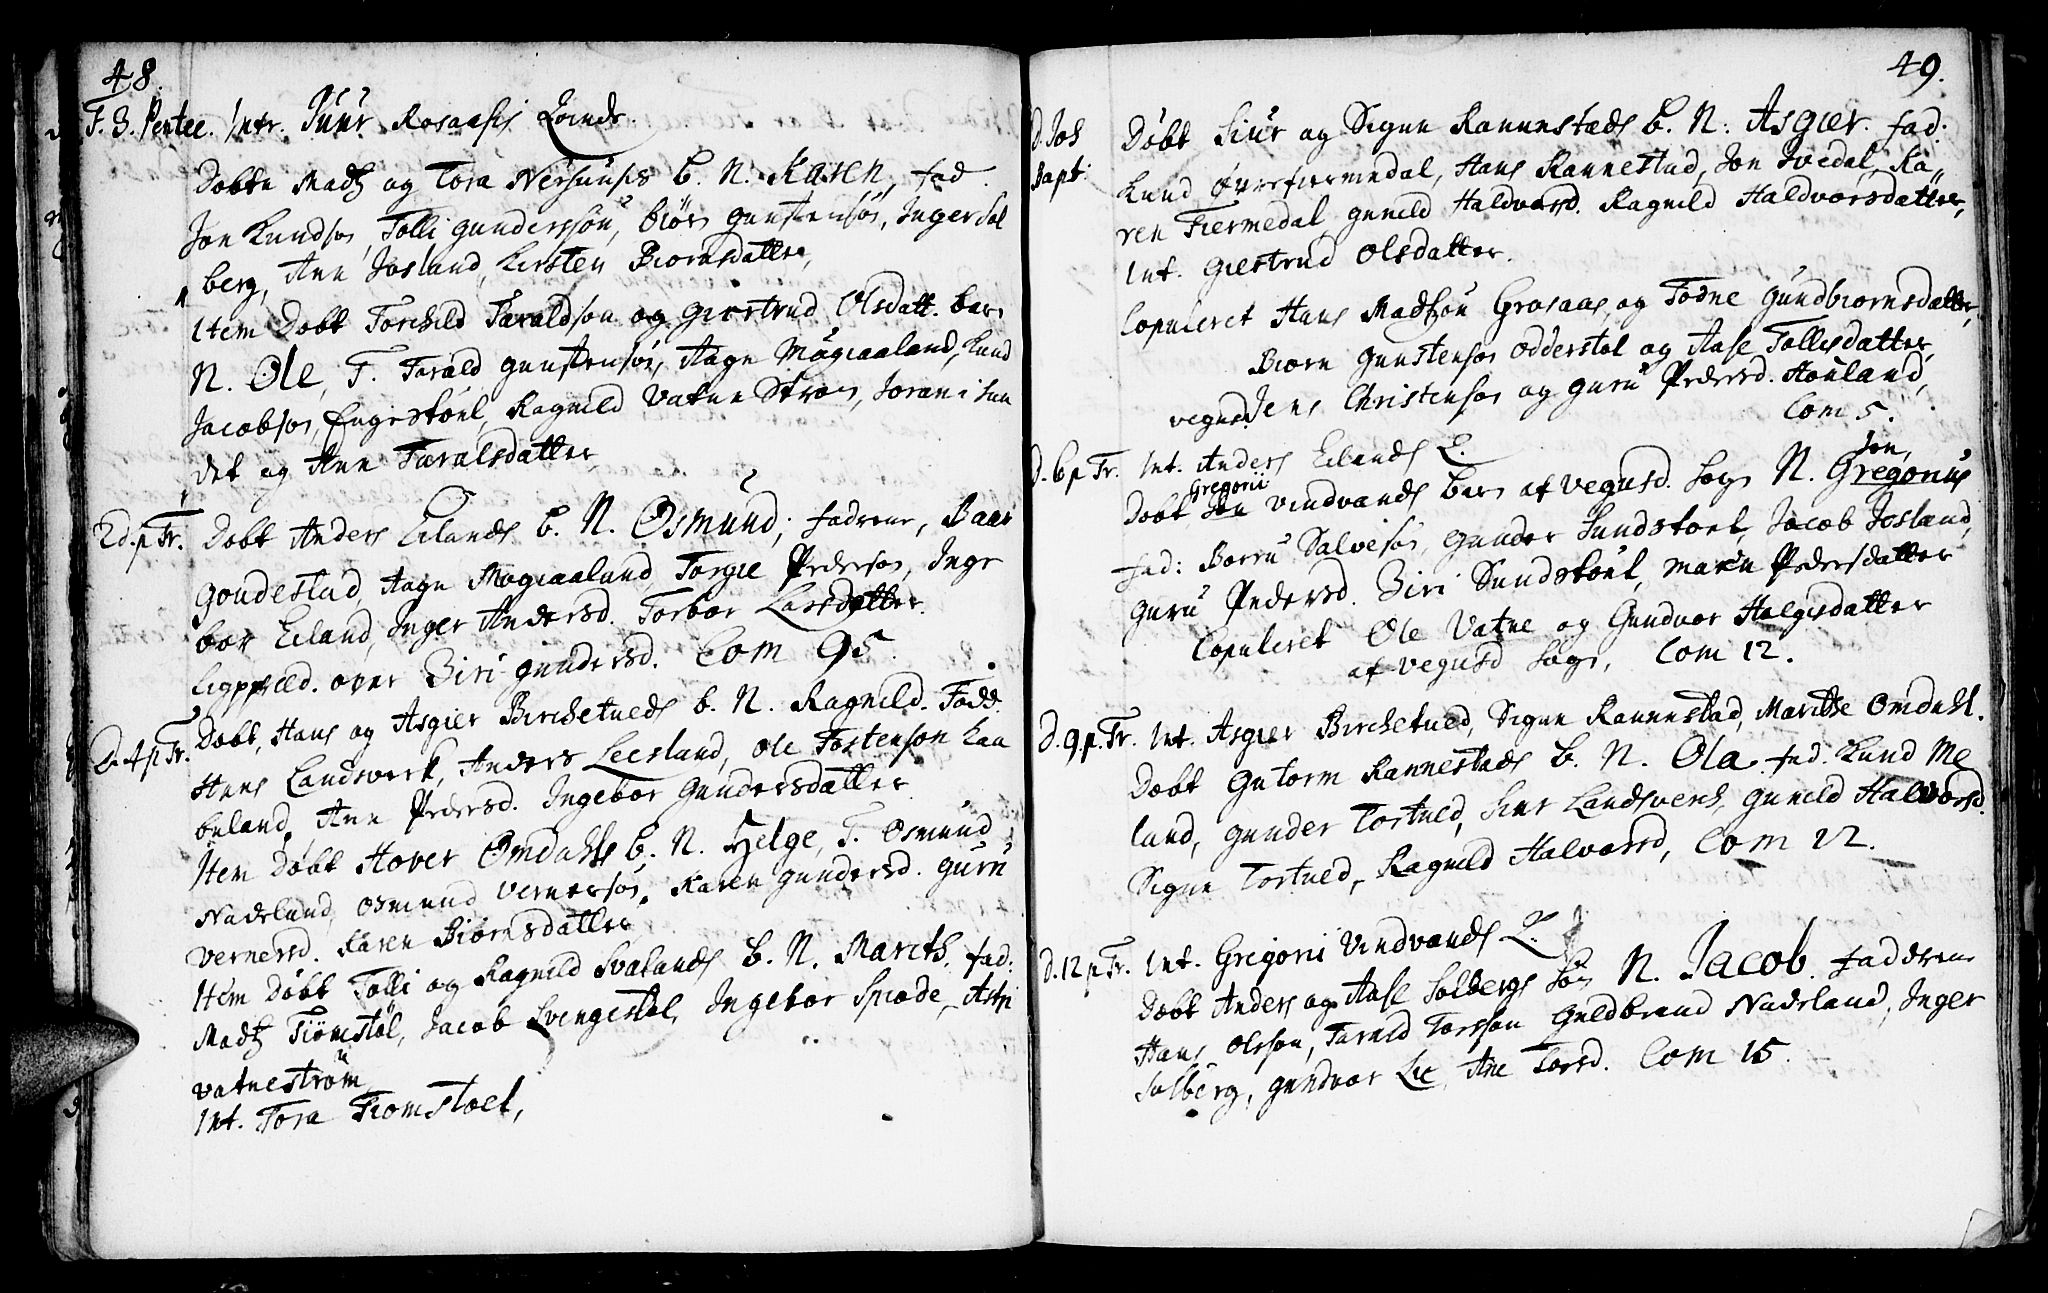 48.
F. 3. Pentec. Intr. Siur Rosaasis Qvinde.
Døbte Madtz og Tora Nersunds b. N. Karen, fad.
Jon Knudsøn, Tolli Gundersøn, Biør Gunstensøn, Inger Sol
berg, Ann Josland, Kirsten Biornsdatter,
Item Døbt Torchild Taraldson og Giertrud Olsdatt. barn
N. Ole, F. Tarald Gunstensøn, Aagn Mogiaaland, Knud
Jacobsøn, Engestøel, Ragnild Vatne Strøm, Joran i Sun
det og Ann Taralsdatter
2 d. p Tr. Døbt Anders Eilands b. N. Osmund; fadrene, Baar
Goudestad, Aagn Mogiaaland Torgie Pedersøn, Inge
bor Eiland, Inger Andersd. Torbor Larsdatter.
Ligpræd. over Siri Gundersd. Com 95.
D. 4 p Tr. Døbt, Hans og Asgier Birchetveds b. N. Ragnild. Fadd.
Hans Landsverk, Anders Leesland, Ole Tostenson Kaa
beland, Ann Pedersd. Ingebor Gundersdatter
Item Døbt Hover Omdahls b. N. Helge, F. Osmund
Nadeland, Osmund Vernersøn, Karen Gundersd. Guru
Vernersd. Karen Biørnsdatter
Item Døbt Tolli og Ragnild Svalands b. N. Marith, fad:
Madtz Tiømstøl, Jacob Lvengestøl, Ingebor Spiøde, Astri
Vatnestrøm
Int. Tora Tiomstoel,
49.
D. Joh Døbt Siur og Signe Rannestads b. N. Asgier. fad:
Bapt: Knud Øvrefiermedal, Hans Rannestad, Jon Svedal, Ka
ren Fiermedal, Gunild Haldvorsd. Ragnild Haldvorsdatter,
Int. Giertrud Olsdatter.
Copuleret Hans Madtzøn Grosaas, og Todne Gundbiornsdatter,
Biørn Gunstensøn Odderstøl og Aase Tollisdatter,
vegusd Jens Christensøn og Guru Pedersd. Houland,
Com 5.
D. 6 p Tr. Int. Anders Eilands Q.
Jon,
Gregorii
Døbt Jon Vindvands barn af vegusd. Sogn N. Gregorius
fad: Borru Salvesøn, Gunder Sundstoel, Jacob Josland,
Guru Pedersd. Siri Sundstøel, Maren Pedersdatter
Copuleret Ole Vatne og Gundvor Halgisdatter
af vegusd Sogn, Com 12.
D. 9 p. Tr. Int. Asgier Birchetved, Signe Rannestad, Marithe Omdahl.
Døbt Gutorm Rannestads b. N. Ola. fad. Knud Me
land, Gunder Tortved, Siur Landsverch, Gunild Halvorsd.
Signe Tortved, Ragnild Halvorsd, Com 22.
D. 12 p Tr. Int. Gregorii Vindvands Q.
Døbt Anders og Aase Solbergs Søn N. Jacob. faddrene
Hans Olsson, Tarald Torsson Guldbrand Nadeland, Inger
Solberg, Gundvor Lie, Ane Torsd. Com 15.